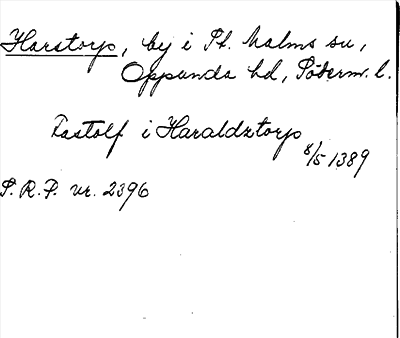 Harstorp, by i St. Malms sn,
Oppunda hd, Söderm. l.
Fastolf i Haraldztorp
8/5 1389
S. R. P. nr. 2396